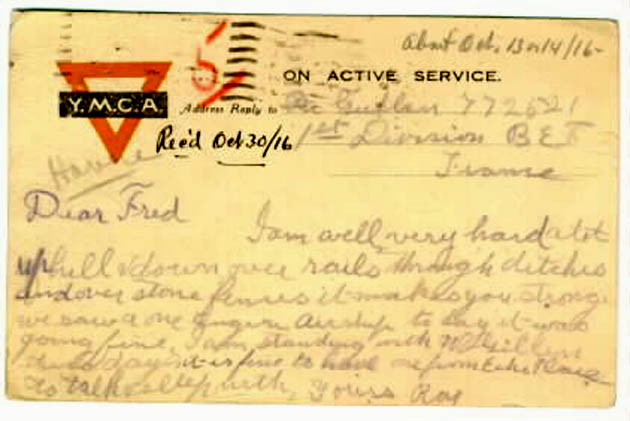 About Oct. 13 or 14/16-
5
ON ACTIVE SERVICE.
Y.M.C.A.
Address Reply to Pte Cutler 772521
Rec'd Oct 30/16
1st Division B E F
France
Dear Fred
I am well, very hard at it
up hill & down over rails through ditches
and over stone fences it makes you strong.
we saw a one Engine Airship to day it was
going fine, I am standing with
it is fine to have one from Echo Place
to talk with, Yours Roy